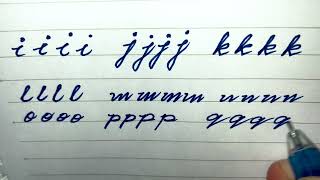 i i i i j j j j k k k k
l l l l m m m m n n n n
o o o o p p p p q q q q